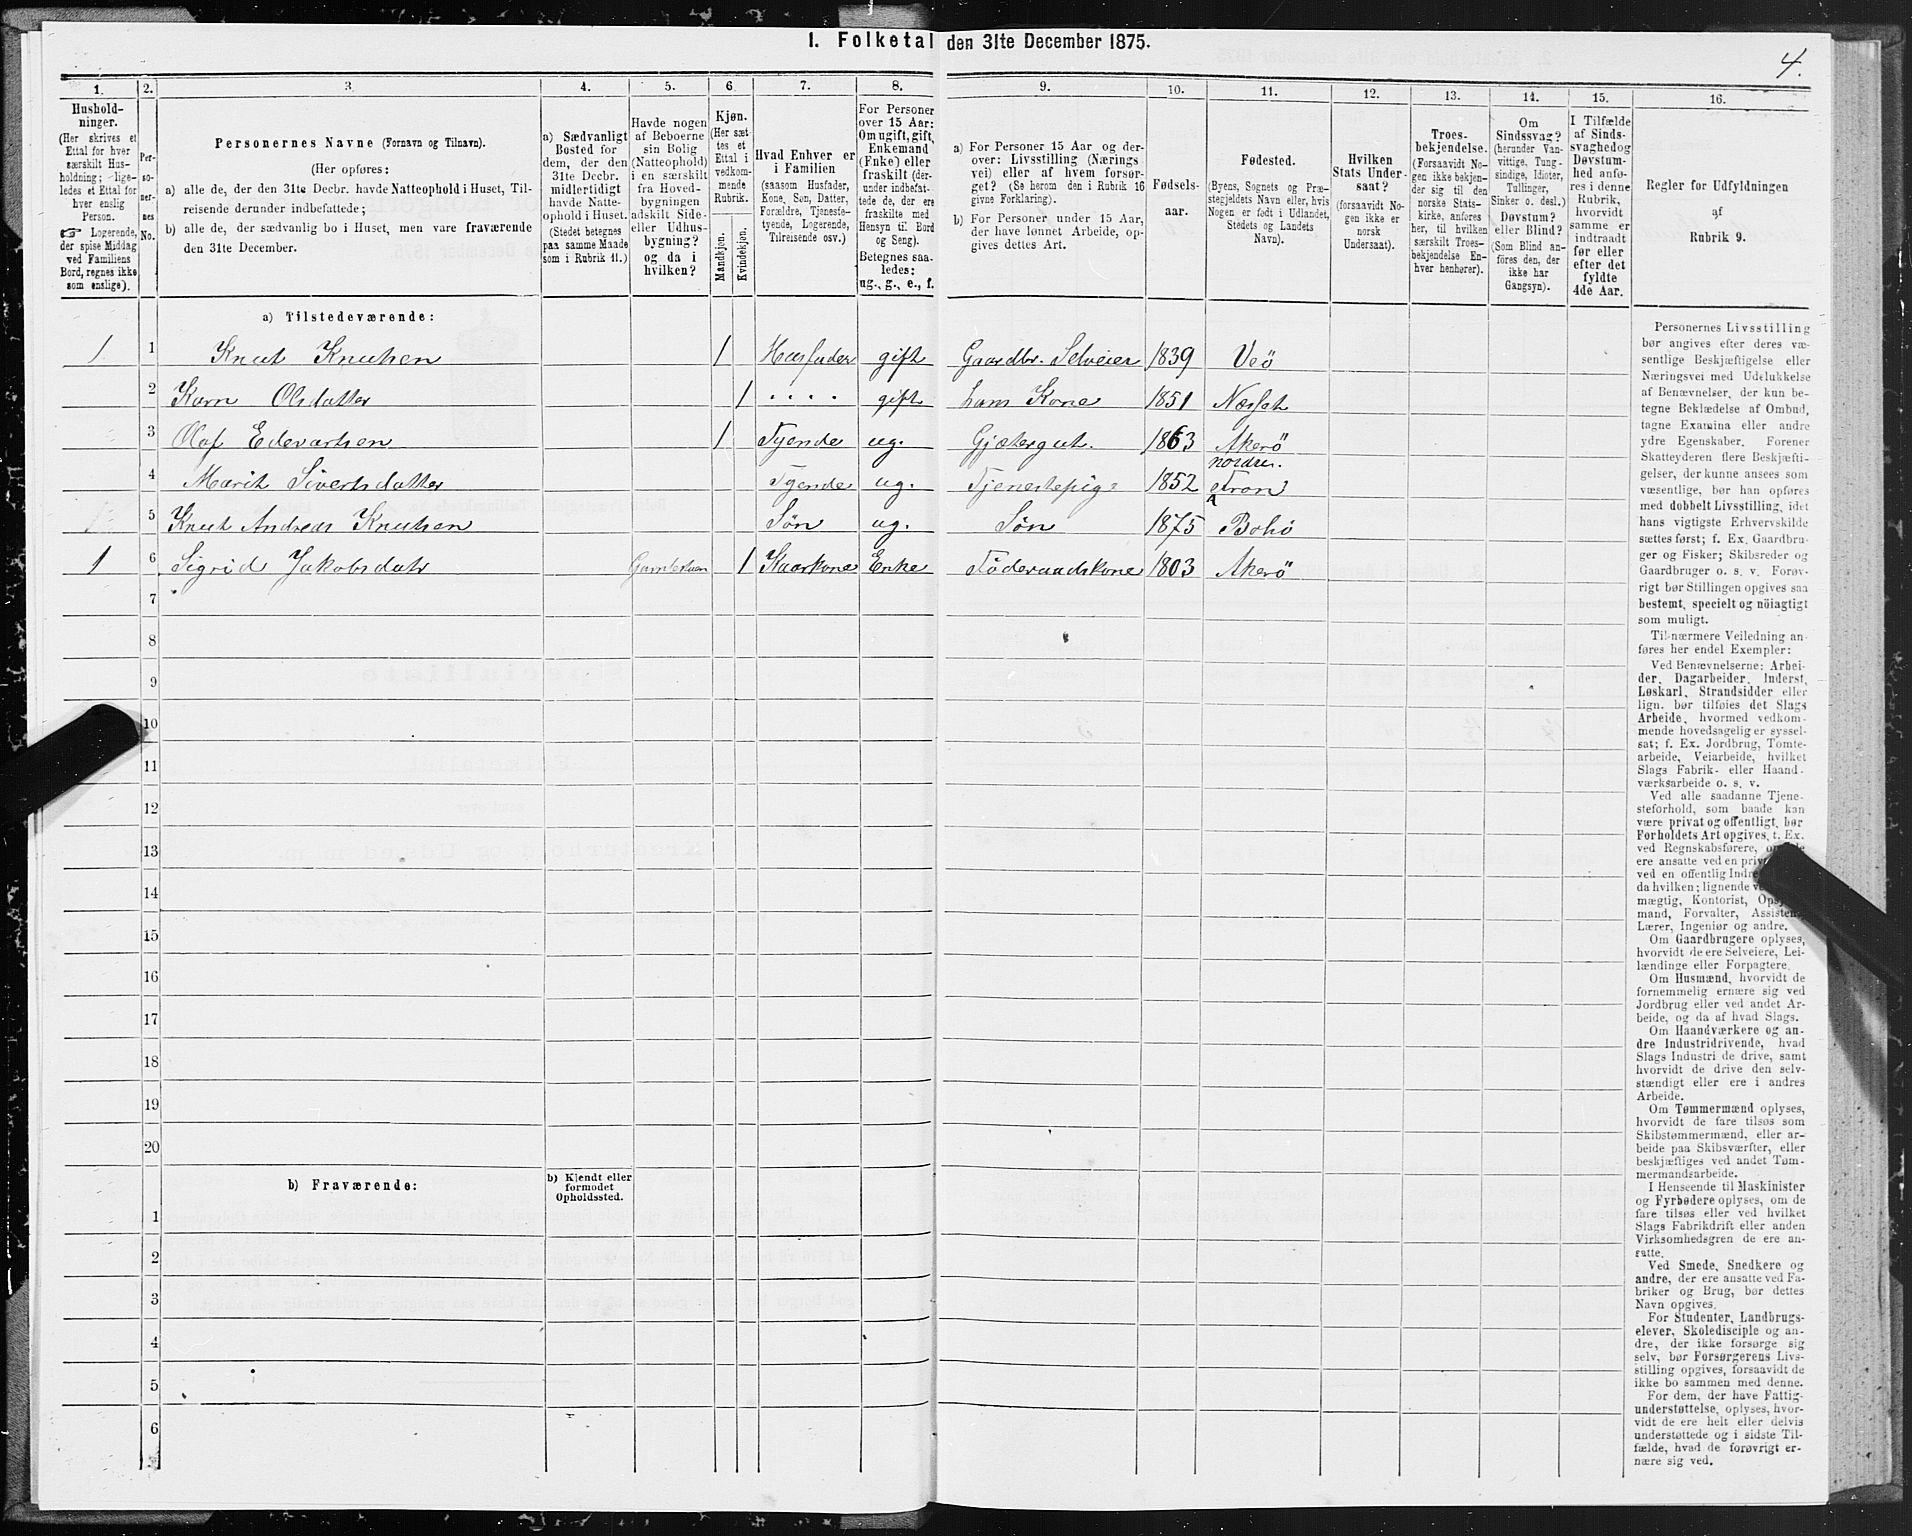 1. Folketal den 31te December 1875.
4.
1.
2.
3.
4.
5.
6.
7.
8.
9.
10.
11.
12.
13.
14.
15.
16.
Hushold-
ninger.
(Her skrives et
Ettal for hver
særskilt Hus-
holdning; lige-
ledes et Ettal for
hver enslig
Person.
Logerende,
der spise Middag
ved Familiens
Bord, regnes ikke
som enslige).
Per-
so-
ner-
nes
No.
Personernes Navne (Fornavn og Tilnavn).
(Her opføres:
a) alle de, der den 31te Decbr. havde Natteophold i Huset, Til-
reisende derunder indbefattede;
b) alle de, der sædvanlig bo i Huset, men vare fraværende
den 31te December.
a) Sædvanligt
Bosted for
dem, der den
31te Decbr.
midlertidigt
havde Natte-
ophold i Huset.
(Stedet betegnes
paa samme Maade
som i Rubrik 11.)
Havde nogen
af Beboerne
sin Bolig
(Natteophold)
i en særskilt
fra Hoved-
bygningen
adskilt Side-
eller Udhus-
bygning?
og da i
hvilken?
Kjøn.
(Her sæt-
tes et
Ettal i
vedkom-
mende
Rubrik.
Mandkjøn.
Kvindekjøn.
Hvad Enhver er
i Familien
(saasom Husfader,
Kone, Søn, Datter,
Forældre, Tjeneste-
tyende, Logerende,
Tilreisende osv.)
For Personer
over 15 Aar:
Om ugift, gift,
Enkemand
(Enke) eller
fraskilt (der-
under indbefat-
tede de, der ere
fraskilte med
Hensyn til Bord
og Seng).
Betegnes saa-
ledes:
ug., g., e., f.
a) For Personer 15 Aar og der-
over: Livsstilling (Nærings
vei) eller af hvem forsør-
get? (Se herom den i Rubrik 16
givne Forklaring).
b) For Personer under 15 Aar,
der have lønnet Arbeide, op-
gives dettes Art.
Fødsels-
aar.
Fødested.
(Byens, Sognets og Præ-
stegjeldets Navn eller, hvis
Nogen er født i Udlandet,
Stedets og Landets
Navn).
Hvilken
Stats Under-
saat?
(forsaavidt No-
gen ikke er
norsk
Undersaat).
Troes-
bekjendelse.
(Forsaavidt No-
gen ikke bekjen-
der sig til den
norske Stats-
kirke, anføres
her, til hvilken
særskilt Troes-
bekjendelse En-
hver henhører).
Om
Sindssvag?
(herunder Van-
vittige, Tung-
sindige, Idioter,
Tullinger,
Sinker o. desl.)
Døvstum?
eller Blind?
(Som Blind an-
føres den, der
ikke har
Gangsyn).
I Tilfælde
af Sinds-
svaghed og
Døvstum-
hed anfø-
res i denne
Rubrik,
hvorvidt
samme er
indtraadt
før eller
efter det
fyldte
4de Aar.
Regler for Udfyldningen
af
Rubrik 9.
a) Tilstedeværende:
1 1 Knut Knutsen 1 Husfader gift Gaardbr. Selveier 1839 Veö
2 Karn Olsdatter 1 " " " " gift hans Kone 1851 Næsset
3 Olaf Edevartsen 1 Tyende ug. Gjætergut. 1863 Akerö
4 Marit Sivertsdatter Tyende ug. Tjenestepige 1852 nordre. Fron
5 Knut Andreas Knutsen Søn ug. Søn 1875 Bolsö
1 6 Sigrid Jakobsdatr 1 Kaarkone Enke Föderaadskone 1803 Akerö
7
8
9
10
11
12
13
14
15
16
17
18
19
20
b) Fraværende:
b) Kjendt eller
formodet
Opholdssted.
1
2
3
4
5
6
Personernes Livsstilling
bør angives efter deres væ-
sentlige Beskjæftigelse eller
Næringsvei med Udelukkelse
af Benævnelser, der kun be-
tegne Beklædelse af Ombud,
tagne Examina eller andre
ydre Egenskaber. Forener
Skatteyderen flere Beskjæfti-
gelser, der kunne ansees som
væsentlige, bør han opføres
med dobbelt Livsstilling, idet
hans vigtigste Erhvervskilde
sættes først; f. Ex. Gaardbru-
ger og Fisker; Skibsreder og
Gaardbruger o. s. v. Forøv-
rigt bør Stillingen opgives saa
bestemt, specielt og nöiagtigt
som muligt.
Til nærmere Veiledning an-
føres her endel Exempler:
Ved Benævnelserne: Arbei-
der, Dagarbeider, Inderst,
Løskarl, Strandsidder eller
lign. bør tilføies det Slags
Arbeide, hvormed vedkom-
mende hovedsagelig er syssel-
sat; f. Ex. Jordbrug, Tomte-
arbeide, Veiarbeide, hvilket
Slags Fabrik- eller Haand-
værksarbeide o. s. v.
Ved alle saadanne Tjene-
steforhold, som baade kan
være privat og offentligt, bør
Forholdets Art opgives, t. Ex.
ved Regnskabsførere, om
ere ansatte ved en
ved en offentlig
da hvilken; lignende
mægtig, Kontorist,
mand, Forvalter, Assistent,
Lærer, Ingeniør og andre.
Om Gaardbrugere oplyses,
hvorvidt de ere Selveiere, Lei-
lændinge eller Forpagtere.
Om Husmænd, hvorvidt de
fornemmelig ernære sig ved
Jordbrug eller ved andet Ar-
beide, og da af hvad Slags.
Om Haandværkere og an-
dre Industridrivende, hvad
Slags Industri de drive, samt
hvorvidt de drive den selv-
stændigt eller ere i andres
Arbeide.
Om Tømmermænd oplyses,
hvorvidt de fare tilsøs som
Skibstømmermænd, eller ar-
beide paa Skibsværfter, eller
beskjæftiges ved andet Tøm-
mermandsarbeide.
I Henseende til Maskinister
og Fyrbødere oplyses, om de
fare tilsøs eller ved hvilket
Slags Fabrikdrift eller anden
Virksomhedsgren de ere an-
satte.
Ved Smede, Snedkere og
andre, der ere ansatte ved Fa-
briker og Brug, bør dettes
Navn opgives.
For Studenter, Landbrugs-
elever, Skoledisciple og an-
dre, der ikke forsørge sig
selv, bør Forsørgerens Livs-
stilling opgives, forsaavidt de
ikke bo sammen med denne.
For dem, der have Fattig-
understøttelse, oplyses, hvor-
vidt de ere helt eller delvis
understøttede og i sidste Til-
fælde, hvad de forøvrigt er-
nære sig ved.